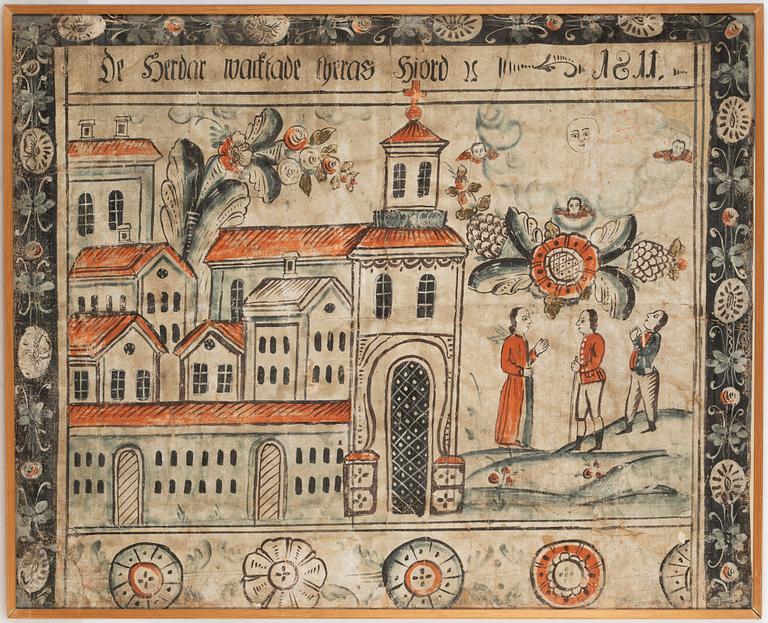 De Herdar wacktade theras Hjord 1811.